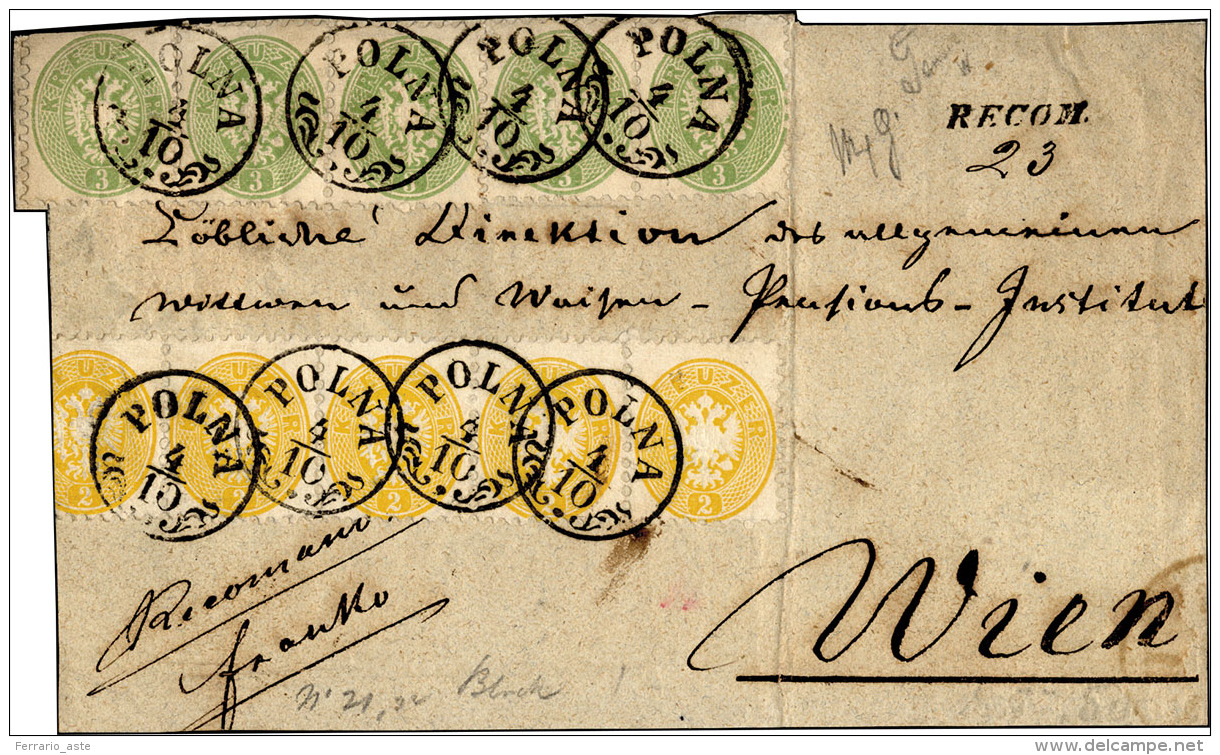 KREUZER KREUZER KREUZER KREUZER KREUZER
POLNA POLNA POLNA POLNA
4/10 4/10 4/10 4/10
3 3 3 3 3
RECOM.
23
Löbliche Direktion des allgemeinen
Wittwen und Waisen - Pensions - Institut
KREUZER KREUZER KREUZER KREUZER KREUZER
POLNA POLNA POLNA POLNA
4/10 4/10 4/10 4/10
2 2 2 2 2
Recomand.
franko
Wien
Block
Ferrario_aste
www.delcampe.net